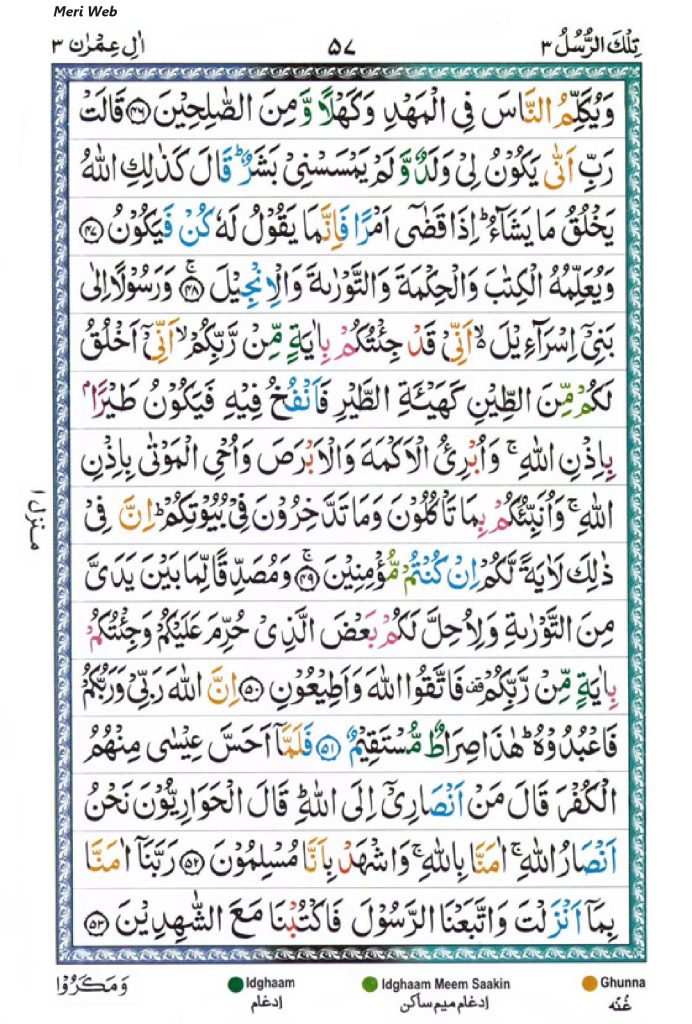 Meri Web
تِلْكَ الرُّسُلُ ٣
٥٧
اٰلِ عِمْرٰن ٣
وَيُكَلِّمُ النَّاسَ فِى الْمَهْدِ وَكَهْلًا وَّ مِنَ الصّٰلِحِيْنَ ﴿٤٦﴾ قَالَتْ
رَبِّ اَنّٰى يَكُوْنُ لِىْ وَلَدٌ وَّ لَمْ يَمْسَسْنِىْ بَشَرٌ ؕ قَالَ كَذٰلِكِ اللّٰهُ
يَخْلُقُ مَا يَشَآءُ ؕ اِذَا قَضٰٓى اَمْرًا فَاِنَّمَا يَقُوْلُ لَهٗ كُنْ فَيَكُوْنُ ﴿٤٧﴾
وَيُعَلِّمُهُ الْكِتٰبَ وَالْحِكْمَةَ وَالتَّوْرٰىةَ وَالْاِنْجِيْلَ ۚ﴿٤٨﴾ وَرَسُوْلًا اِلٰى
بَنِىْۤ اِسْرَآءِيْلَ ۙ اَنِّىْ قَدْ جِئْتُكُمْ بِاٰيَةٍ مِّنْ رَّبِّكُمْ ۙ اَنِّىْۤ اَخْلُقُ
لَكُمْ مِّنَ الطِّيْنِ كَهَيْئَةِ الطَّيْرِ فَاَنْفُخُ فِيْهِ فَيَكُوْنُ طَيْرًاۢ
بِاِذْنِ اللّٰهِ ۚ وَاُبْرِئُ الْاَكْمَهَ وَالْاَبْرَصَ وَاُحْىِ الْمَوْتٰى بِاِذْنِ
اللّٰهِ ۚ وَاُنَبِّئُكُمْ بِمَا تَاْكُلُوْنَ وَمَا تَدَّخِرُوْنَ فِىْ بُيُوْتِكُمْ ؕ اِنَّ فِىْ
ذٰلِكَ لَاٰيَةً لَّكُمْ اِنْ كُنْتُمْ مُّؤْمِنِيْنَ ۚ﴿٤٩﴾ وَمُصَدِّقًا لِّمَا بَيْنَ يَدَىَّ
مِنَ التَّوْرٰىةِ وَلِاُحِلَّ لَكُمْ بَعْضَ الَّذِىْ حُرِّمَ عَلَيْكُمْ وَجِئْتُكُمْ
بِاٰيَةٍ مِّنْ رَّبِّكُمْ ۟ فَاتَّقُوا اللّٰهَ وَاَطِيْعُوْنِ ﴿٥٠﴾ اِنَّ اللّٰهَ رَبِّىْ وَرَبُّكُمْ
فَاعْبُدُوْهُ ؕ هٰذَا صِرَاطٌ مُّسْتَقِيْمٌ ﴿٥١﴾ فَلَمَّاۤ اَحَسَّ عِيْسٰى مِنْهُمُ
الْكُفْرَ قَالَ مَنْ اَنْصَارِىْۤ اِلَى اللّٰهِ ؕ قَالَ الْحَوَارِيُّوْنَ نَحْنُ
اَنْصَارُ اللّٰهِ ۚ اٰمَنَّا بِاللّٰهِ ۚ وَاشْهَدْ بِاَنَّا مُسْلِمُوْنَ ﴿٥٢﴾ رَبَّنَاۤ اٰمَنَّا
بِمَاۤ اَنْزَلْتَ وَاتَّبَعْنَا الرَّسُوْلَ فَاكْتُبْنَا مَعَ الشّٰهِدِيْنَ ﴿٥٣﴾
منزل ١
وَمَكَرُوْا
Idghaam
ادغام
Idghaam Meem Saakin
ادغام میم ساکن
Ghunna
غُنّہ